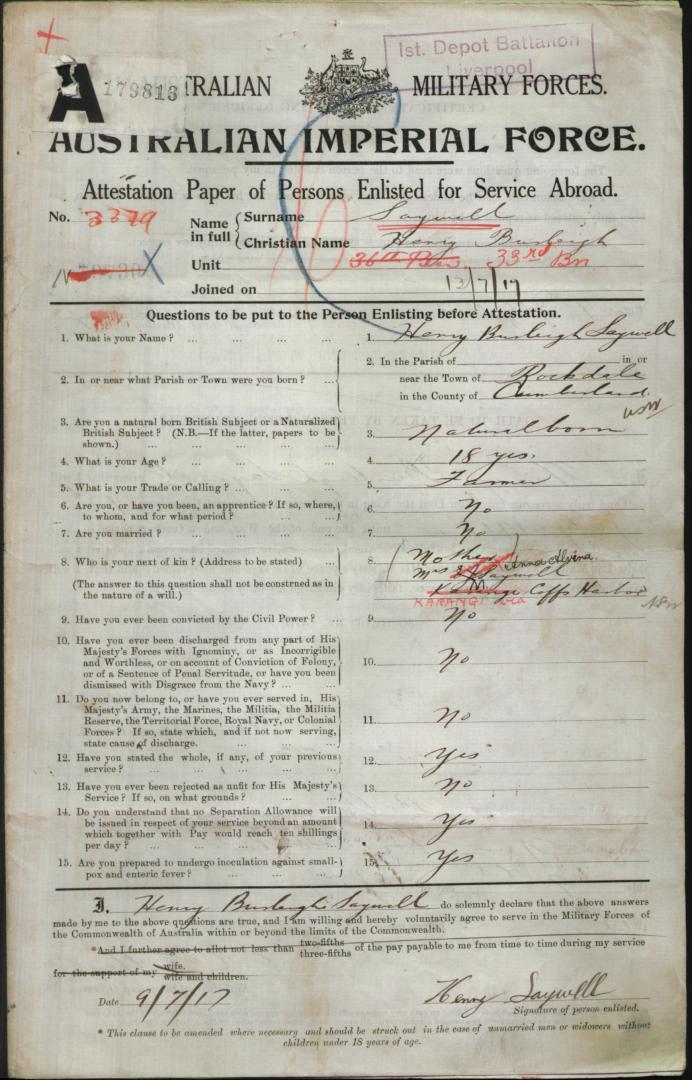 1st. Depot Battalion
Liverpool
A 179813
TRALIAN MILITARY FORCES.
AUSTRALIAN IMPERIAL FORCE.
Attestation Paper of Persons Enlisted for Service Abroad.
No. 3379
Name in full { Surname Saywell
Christian Name Henry Burleigh
Unit 36th 33rd Bn
Joined on 12/7/17
Questions to be put to the Person Enlisting before Attestation.
1. What is your Name? ... ... ... ... 1. Henry Burleigh Saywell
2. In or near what Parish or Town were you born? ... 2. In the Parish of in or
near the Town of Rockdale
in the County of Cumberland. NSW
3. Are you a natural born British Subject or a Naturalized
British Subject? (N.B.—If the latter, papers to be
shown.) ... ... ... ... 3. Natural born
4. What is your Age? ... ... ... ... 4. 18 yrs.
5. What is your Trade or Calling? ... ... ... 5. Farmer
6. Are you, or have you been, an apprentice? If so, where,
to whom, and for what period? ... ... 6. No
7. Are you married? ... ... ... ... 7. No
8. Who is your next of kin? (Address to be stated) ... 8. (Mother)
Mrs Anna Alvina.
Saywell
(The answer to this question shall not be construed as in
the nature of a will.) Coffs Harbor NSW
KARANGI via
9. Have you ever been convicted by the Civil Power? ... 9. No
10. Have you ever been discharged from any part of His
Majesty's Forces with Ignominy, or as Incorrigible
and Worthless, or on account of Conviction of Felony,
or of a Sentence of Penal Servitude, or have you been
dismissed with Disgrace from the Navy? ... ... 10. No
11. Do you now belong to, or have you ever served in, His
Majesty's Army, the Marines, the Militia, the Militia
Reserve, the Territorial Force, Royal Navy, or Colonial
Forces? If so, state which, and if not now serving,
state cause of discharge. ... ... ... 11. No
12. Have you stated the whole, if any, of your previous
service? ... ... ... ... ... 12. Yes
13. Have you ever been rejected as unfit for His Majesty's
Service? If so, on what grounds? ... ... 13. No
14. Do you understand that no Separation Allowance will
be issued in respect of your service beyond an amount
which together with Pay would reach ten shillings
per day? ... ... ... ... ... 14. Yes
15. Are you prepared to undergo inoculation against small-
pox and enteric fever? ... ... ... ... 15. Yes
I, Henry Burleigh Saywell do solemnly declare that the above answers
made by me to the above questions are true, and I am willing and hereby voluntarily agree to serve in the Military Forces of
the Commonwealth of Australia within or beyond the limits of the Commonwealth.
*And I further agree to allot not less than two-fifths three-fifths of the pay payable to me from time to time during my service
for the support of my wife. wife and children.
Date 9/7/17 Henry Saywell
Signature of person enlisted.
* This clause to be amended where necessary and should be struck out in the case of unmarried men or widowers without
children under 18 years of age.